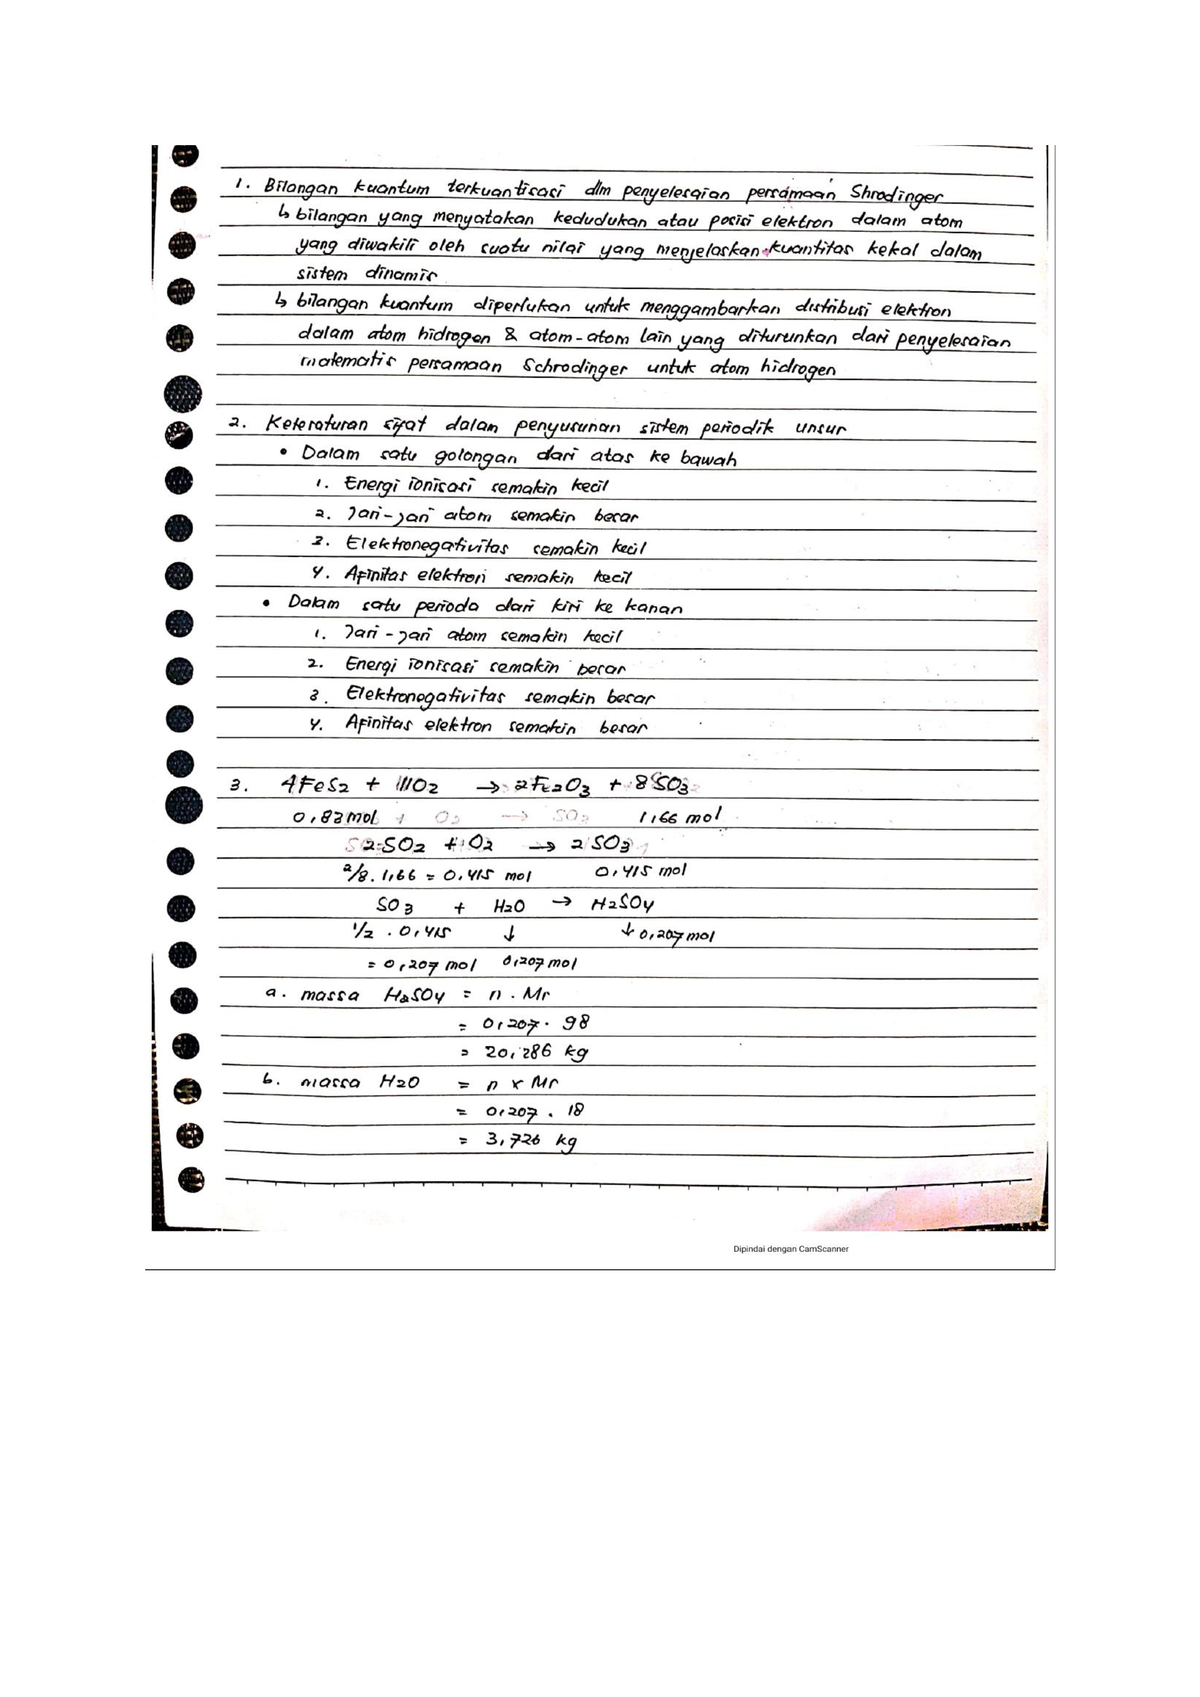 1. Bilangan kuantum terkuantisasi dlm penyelesaian persamaan Shrodinger
↳ bilangan yang menyatakan kedudukan atau posisi elektron dalam atom
yang diwakili oleh suatu nilai yang menjelaskan kuantitas kekal dalam
sistem dinamis
↳ bilangan kuantum diperlukan untuk menggambarkan distribusi elektron
dalam atom hidrogen & atom-atom lain yang diturunkan dari penyelesaian
matematis persamaan Schrodinger untuk atom hidrogen
2. Keteraturan sifat dalam penyusunan sistem periodik unsur
• Dalam satu golongan dari atas ke bawah
1. Energi ionisasi semakin kecil
2. Jari-jari atom semakin besar
3. Elektronegativitas semakin kecil
4. Afinitas elektron semakin kecil
• Dalam satu perioda dari kiri ke kanan
1. Jari-jari atom semakin kecil
2. Energi ionisasi semakin besar
3. Elektronegativitas semakin besar
4. Afinitas elektron semakin besar
3. 4FeS2 + 11O2 → 2Fe2O3 + 8SO3
0,83 mol 1,66 mol
2SO2 + O2 → 2SO3
2/8. 1,66 = 0,415 mol 0,415 mol
SO3 + H2O → H2SO4
1/2 . 0,415 ↓ ↓ 0,207 mol
= 0,207 mol 0,207 mol
a. massa H2SO4 = n . Mr
= 0,207 . 98
= 20,286 kg
b. massa H2O = n x Mr
= 0,207 . 18
= 3,726 kg
Dipindai dengan CamScanner